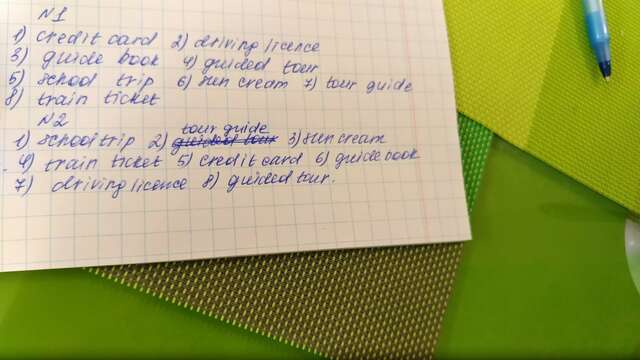 N1
1) credit card 2) driving licence
3) guide book 4) guided tour
5) school trip 6) sun cream 7) tour guide
8) train ticket
N2
tour guide
1) school trip 2) guided tour 3) sun cream
4) train ticket 5) credit card 6) guide book
7) driving licence 8) guided tour.